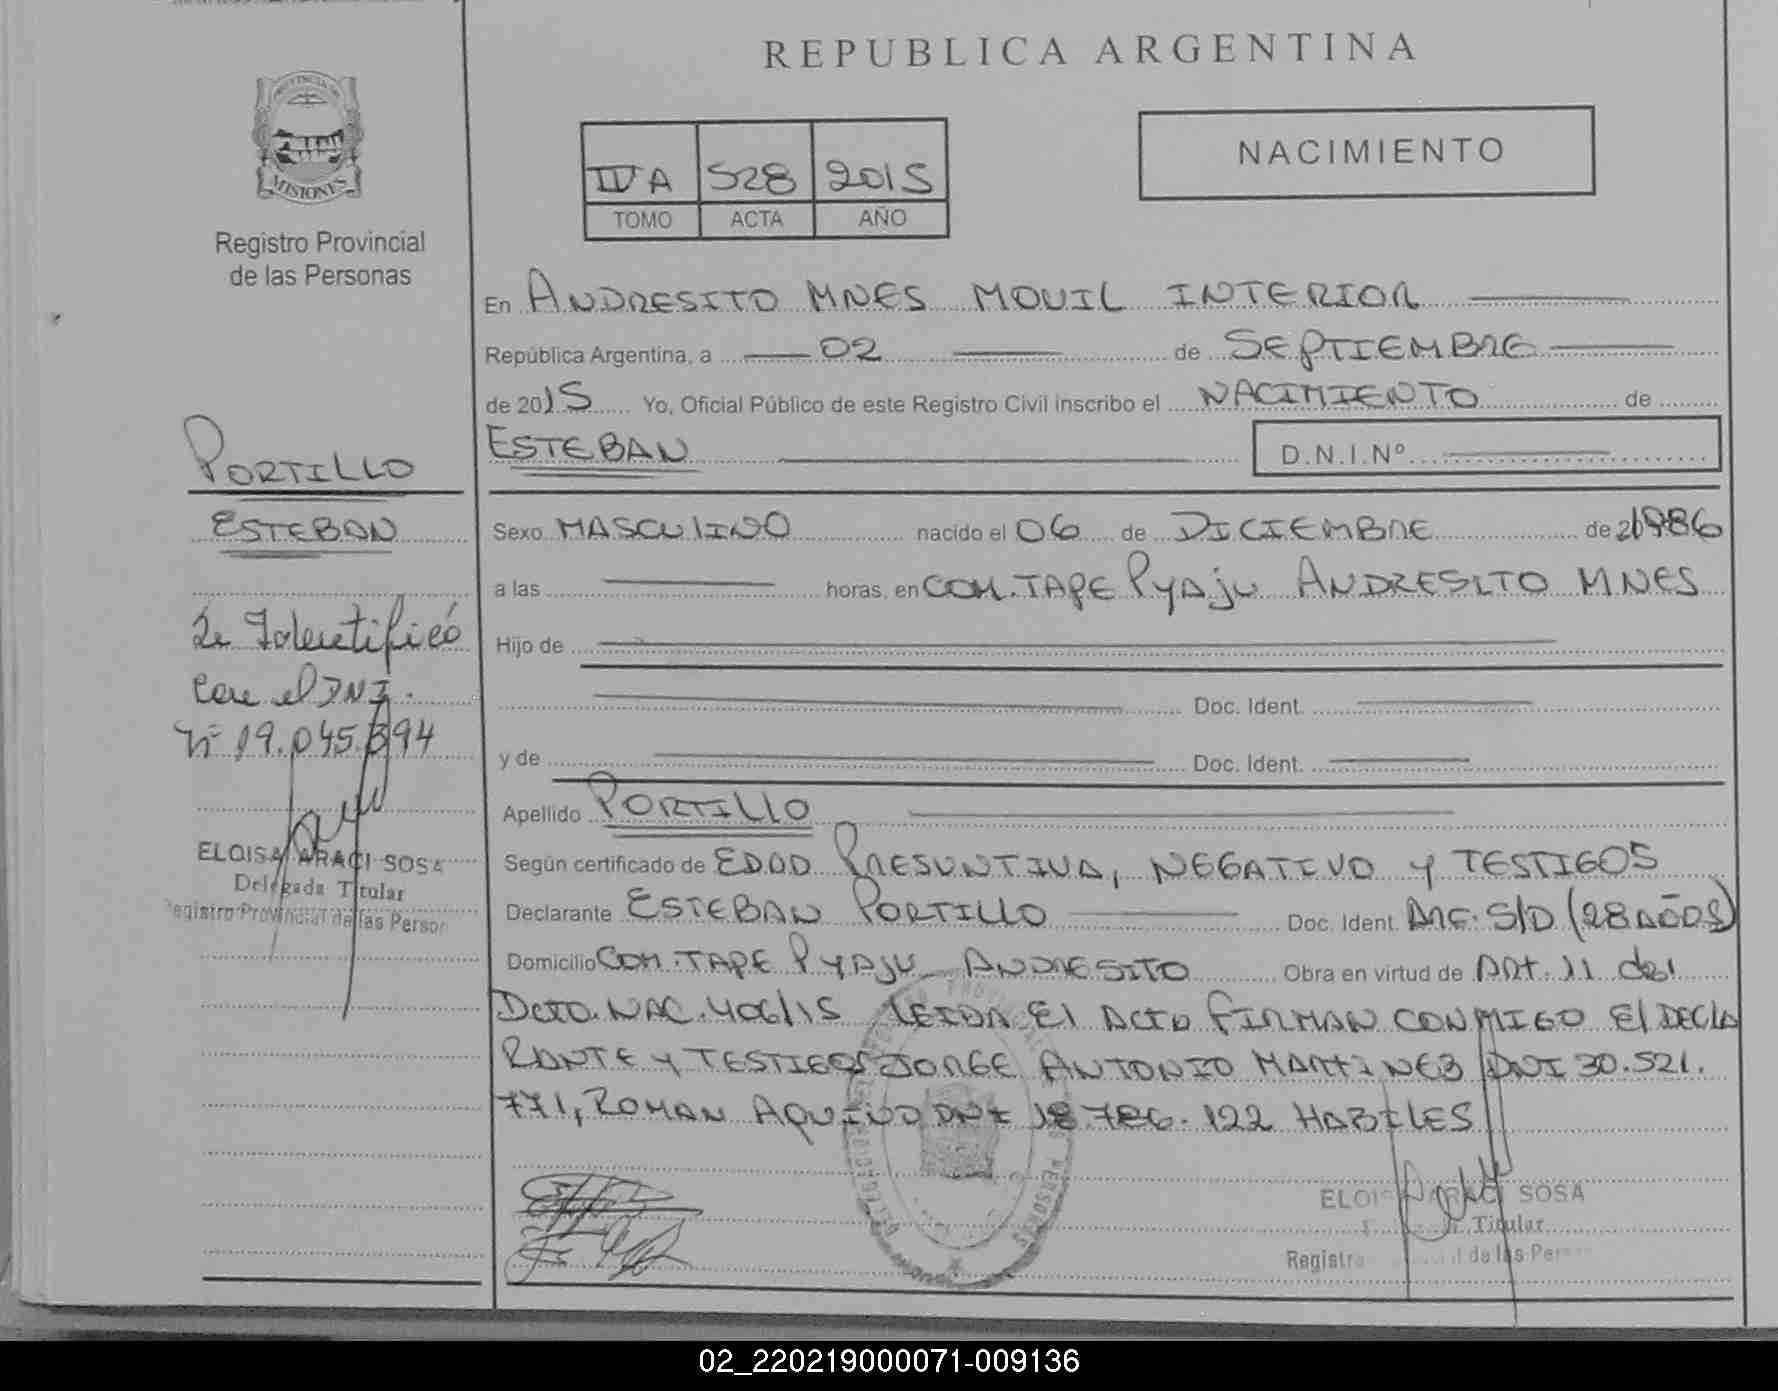 REPUBLICA ARGENTINA
PROVINCIA DE
MISIONES
Registro Provincial
de las Personas
IVA 528 2015
TOMO ACTA AÑO
NACIMIENTO
En ANDRESITO MNES MOVIL INTERIOR
República Argentina, a 02 de SEPTIEMBRE
de 2015 Yo, Oficial Público de este Registro Civil inscribo el NACIMIENTO de
ESTEBAN D.N.I.Nº
PORTILLO
ESTEBAN
Se Identificó
con el DNI.
Nº 19.045.894
ELOISA ARACI SOSA
Delegada Titular
Registro Provincial de las Person
Sexo MASCULINO nacido el 06 de DICIEMBRE de 1986
a las horas, en COM. TAPE PYAJU ANDRESITO MNES
Hijo de
Doc. Ident.
y de Doc. Ident.
Apellido PORTILLO
Según certificado de EDAD PRESUNTIVA, NEGATIVO Y TESTIGOS
Declarante ESTEBAN PORTILLO Doc. Ident. ARG. S/D (28 AÑOS)
Domicilio COM. TAPE PYAJU ANDRESITO Obra en virtud de ART. 11 del
DCTO. NAC. 406/15 LEIDA El ACTA FIRMAN CONMIGO El DECLA
RANTE Y TESTIGOS JORGE ANTONIO MARTINEZ DNI 30.521.
771, ROMAN AQUINO DNI 18.786.122 HABILES
ELOI SOSA
Titular
Registr l de las Per
02_220219000071-009136